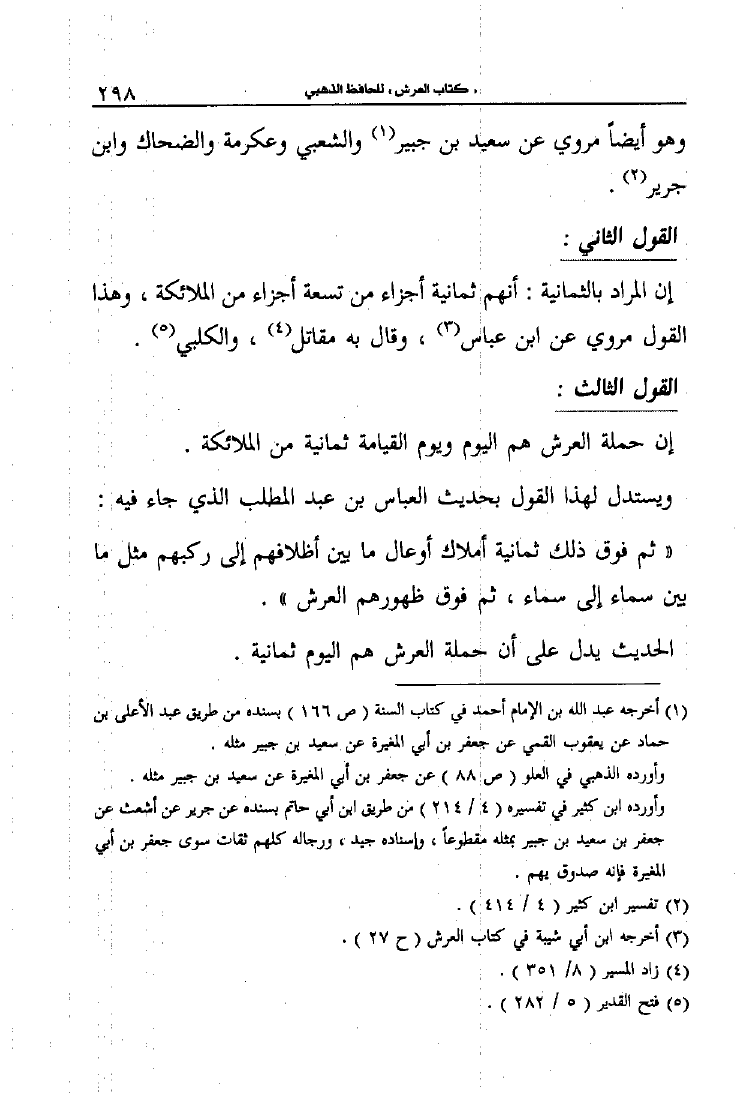 « كتاب العرش » للحافظ الذهبي ٢٩٨
وهو أيضاً مروي عن سعيد بن جبير(١) والشعبي وعكرمة والضحاك وابن
جرير(٢) .
القول الثاني :
إن المراد بالثمانية : أنهم ثمانية أجزاء من تسعة أجزاء من الملائكة ، وهذا
القول مروي عن ابن عباس(٣) ، وقال به مقاتل(٤) ، والكلبي(٥) .
القول الثالث :
إن حملة العرش هم اليوم ويوم القيامة ثمانية من الملائكة .
ويستدل لهذا القول بحديث العباس بن عبد المطلب الذي جاء فيه :
« ثم فوق ذلك ثمانية أملاك أوعال ما بين أظلافهم إلى ركبهم مثل ما
بين سماء إلى سماء ، ثم فوق ظهورهم العرش » .
الحديث يدل على أن حملة العرش هم اليوم ثمانية .
(١) أخرجه عبد الله بن الإمام أحمد في كتاب السنة ( ص ١٦٦ ) بسنده من طريق عبد الأعلى بن
حماد عن يعقوب القمي عن جعفر بن أبي المغيرة عن سعيد بن جبير مثله .
وأورده الذهبي في العلو ( ص ٨٨ ) عن جعفر بن أبي المغيرة عن سعيد بن جبير مثله .
وأورده ابن كثير في تفسيره ( ٤ / ٢١٤ ) من طريق ابن أبي حاتم بسنده عن جرير عن أشعث عن
جعفر بن سعيد بن جبير بمثله مقطوعاً ، وإسناده جيد ، ورجاله كلهم ثقات سوى جعفر بن أبي
المغيرة فإنه صدوق يهم .
(٢) تفسير ابن كثير ( ٤ / ٤١٤ ) .
(٣) أخرجه ابن أبي شيبة في كتاب العرش ( ح ٢٧ ) .
(٤) زاد المسير ( ٨/ ٣٥١ ) .
(٥) فتح القدير ( ٥ / ٢٨٢ ) .